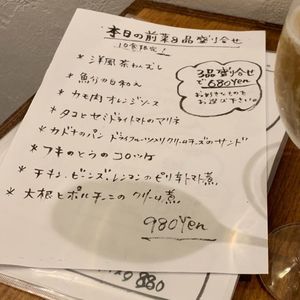 本日の前菜8品盛り合せ
10食限定!
* 洋風茶わんむし
* 魚介の白和え
* カモ肉オレンジソース
* タコとセミドライトマトのマリネ
* カボチャのパン ドライフルーツ入りクリームチーズのサンド
* フキのとうのコロッケ
* チキン、ビーンズ、レンコンのピリ辛トマト煮
* 大根とポルチーニのクリーム煮
980Yen
3品盛り合せ
で680Yen
お好きなもの
お選び下さい。
880